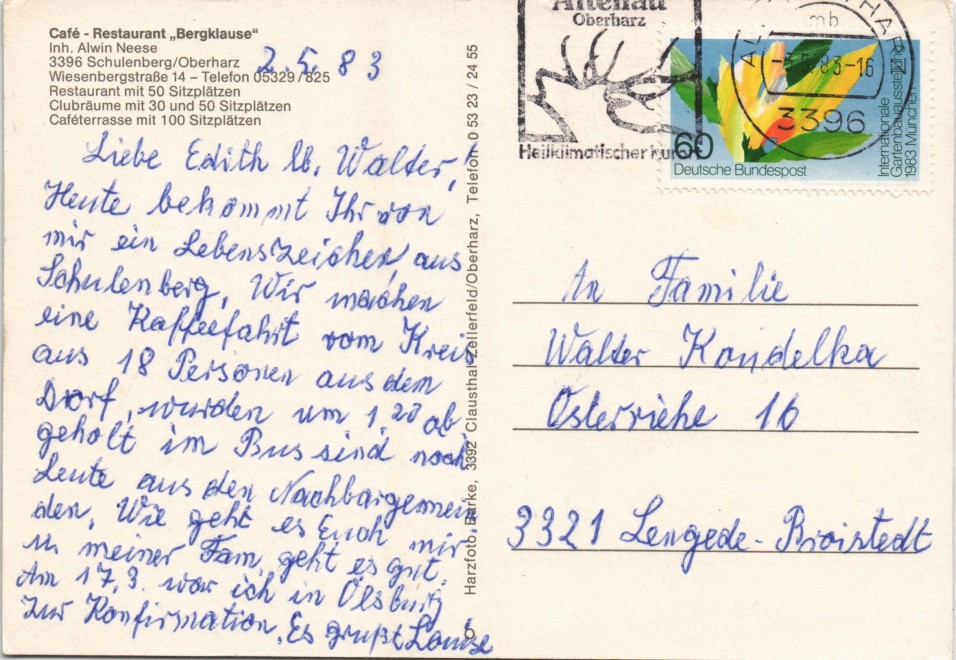 Café - Restaurant „Bergklause“
Inh. Alwin Neese
3396 Schulenberg/Oberharz
Wiesenbergstraße 14 – Telefon 05329/825
Restaurant mit 50 Sitzplätzen
Clubräume mit 30 und 50 Sitzplätzen
Caféterrasse mit 100 Sitzplätzen
2.5.83
Liebe Edith lb. Walter,
Heute bekommt Ihr von
mir ein Lebenszeichen aus
Schulenberg, Wir machen
eine Kaffeefahrt vom Kreis
aus 18 Personen aus dem
Dorf, wurden um 1,20 ab
geholt im Bus sind noch
Leute aus den Nachbargemein
den. Wie geht es Euch mir
u meiner Fam, geht es gut.
Am 17.3. war ich in Ölsburg
zur Konfirmation. Es grüßt Louise
Harzfoto Barke, 3392 Clausthal-Zellerfeld/Oberharz, Telefon 0 53 23 / 24 55
Altenau
Oberharz
Heilklimatischer Kurort
mb
-3.5.83-16
3396
60
Deutsche Bundespost
Internationale
Gartenbauausstellung
1983 München
An Familie
Walter Kondelka
Österriehe 16
3321 Lengede-Broistedt